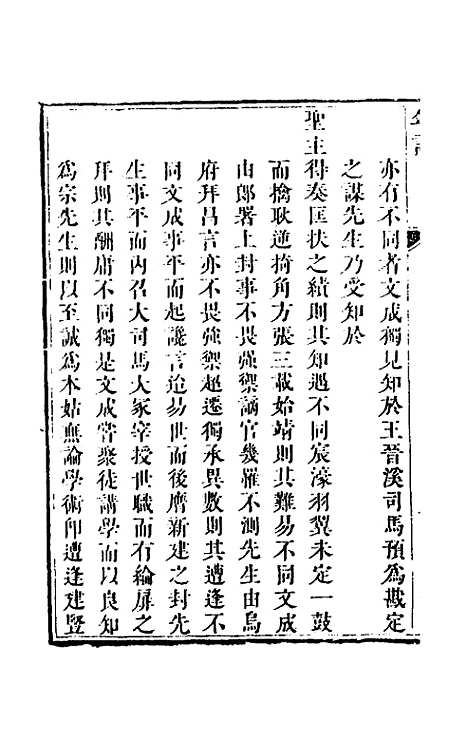 亦有不同者文成獨見知於王晉溪司馬預為戡定
之謀先生乃受知於
聖主得奏匡扶之績則其知遇不同宸濠羽翼未定一鼓
而擒耿逆掎角方張三載始靖則其難易不同文成
由郎署上封事不畏強禦謫官幾罹不測先生由烏
府拜昌言亦不畏強禦超遷獨承異數則其遭逢不
同文成事平而起謗言迨易世而後膺新建之封先
生事平而內召大司馬大冢宰授世職而有綸扉之
拜則其酬庸不同獨是文成嘗聚徒講學而以良知
為宗先生則以至誠為本姑無論學術卽遭逢建豎